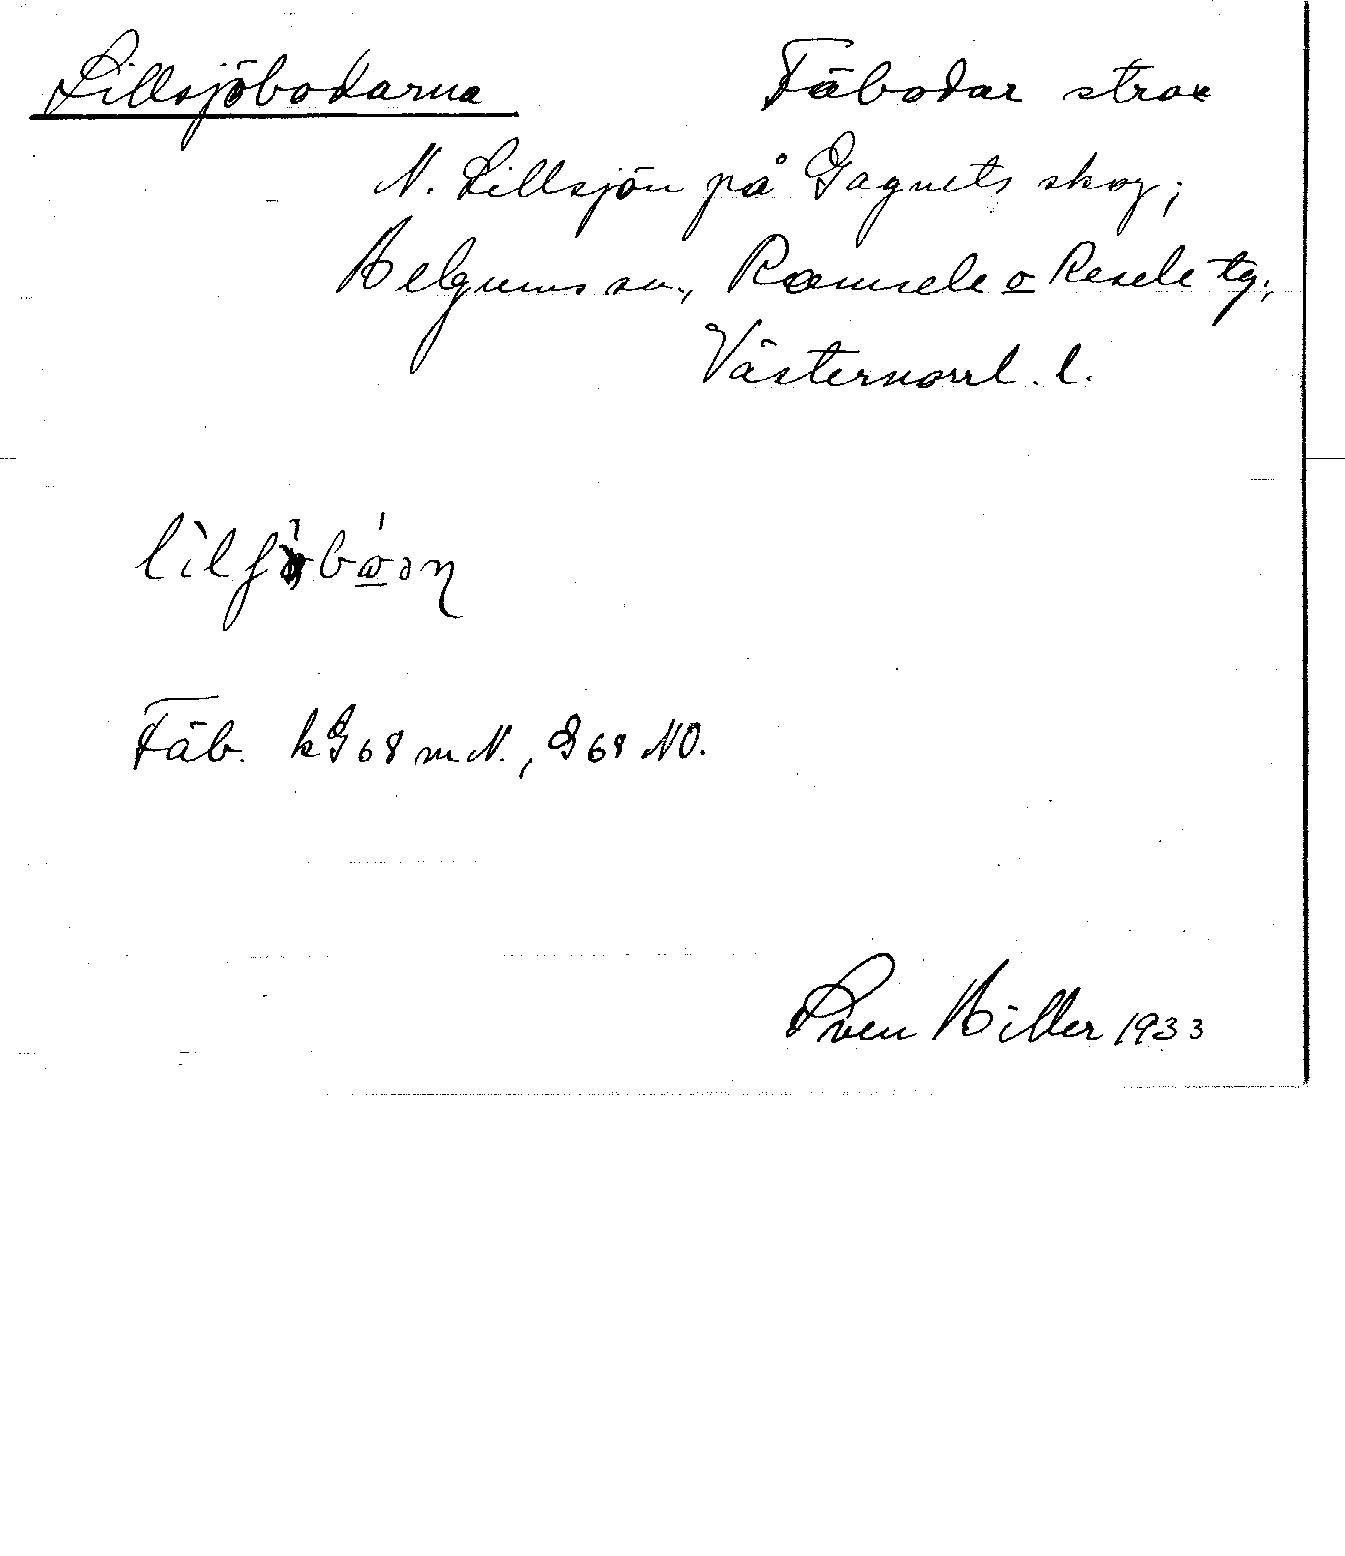 Lillsjöbodarna Fäbodar strax
N. Lillsjön på Gagnets skog;
Helgums sn., Ramsele o Resele tg.,
Västernorrl. l.
Fäb. kG68 m N., G68 NO.
Sven Hiller 1933